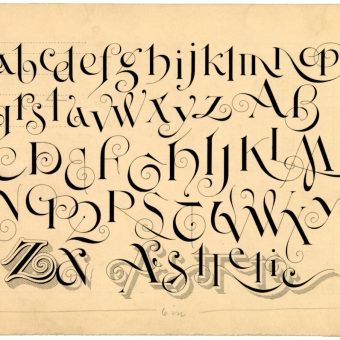 abcdefghijklmnop
qrstuvwxyz AB
CDEFGHIJKLM
NOPQRSTUVWXY
Z & Æsthetic